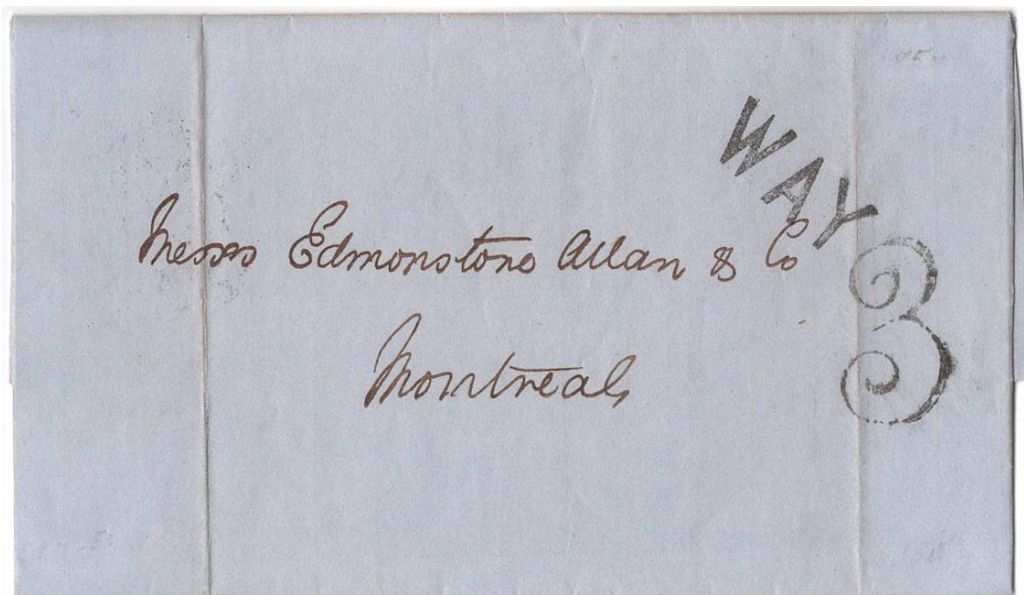 WAY
3
Messrs Edmonstone Allan & Co
Montreal